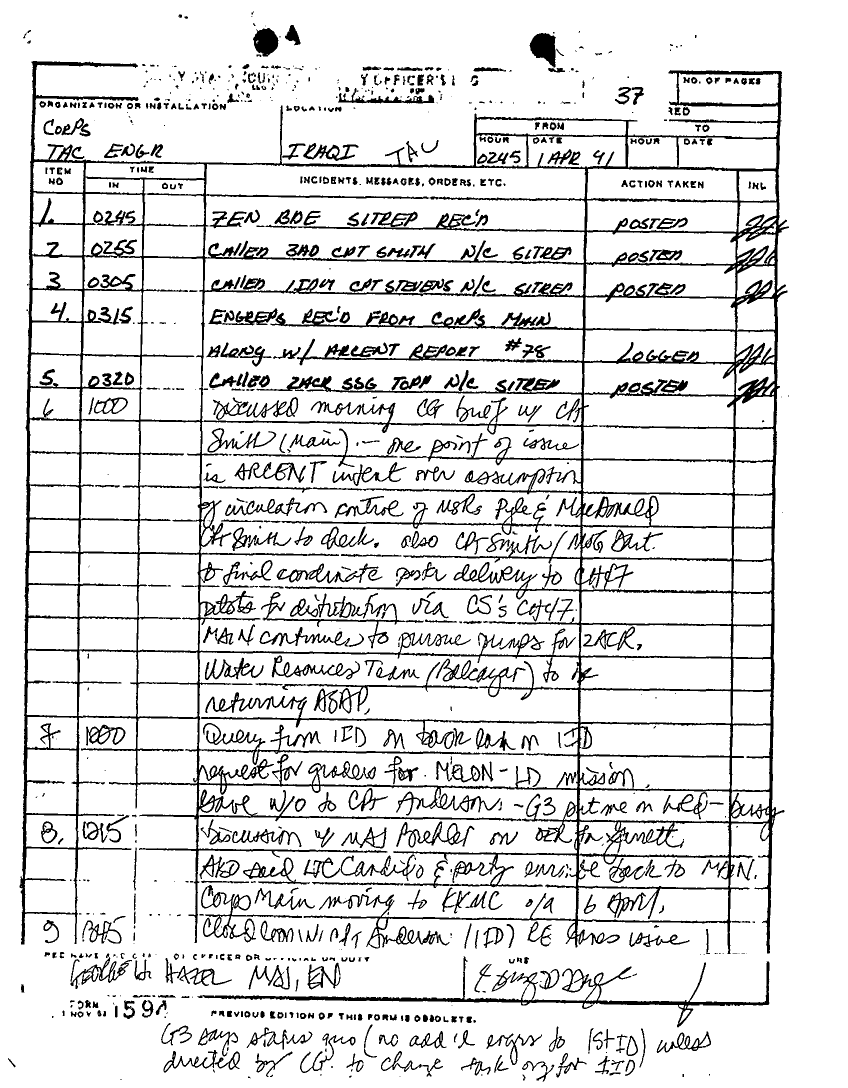 37
NO. OF PAGES
ORGANIZATION OR INSTALLATION
LOCATION
FROM
TO
CORPS
TAC ENGR
IRAQI TAC
HOUR DATE HOUR DATE
0245 1 APR 91
ITEM NO TIME INCIDENTS, MESSAGES, ORDERS, ETC. ACTION TAKEN INL
IN OUT
1. 0245 7EN BDE SITREP REC'D POSTED
2 0255 CALLED 3AD CPT SMITH N/C SITREP POSTED
3 0305 CALLED 1ID CPT STEVENS N/C SITREP POSTED
4. 0315 ENGREPS REC'D FROM CORPS MAIN
ALONG W/ ARCENT REPORT #78 LOGGED
5. 0320 CALLED 2ACR SSG TOPP N/C SITREP POSTED
6 1000 Discussed morning CG brief w/ CPT
Smith (Main) - one point of issue
is ARCENT intent over assumption
of circulation control of MSRs Pyle & MacDonald
CPT Smith to check. also CPT Smith /
to final coordinate poster delivery to CH47
pilots for distribution via CS's CH47.
MAIN continues to pursue pumps for 2ACR.
Water Resources Team (Balcayar) to be
returning ASAP.
7 Query from 1ID on on 1ID
request for graders for MELON-LD mission.
Gave w/o to CPT Anderson. - G3 put me on hold - busy
8. 1215 Discussion w/ MAJ on OER for
AKO said LTC Candido & party enroute back to MAIN.
Corps Main moving to KKMC o/a 6 April.
9 Closed loop w/ CPT Anderson (1ID) RE issue
GEORGE H. HAZEL MAJ, EN
FORM 1 NOV 62 1594 PREVIOUS EDITION OF THIS FORM IS OBSOLETE.
G3 says status quo (no add'l engrs to 1st ID) unless
directed by CG. to change task org for 1ID